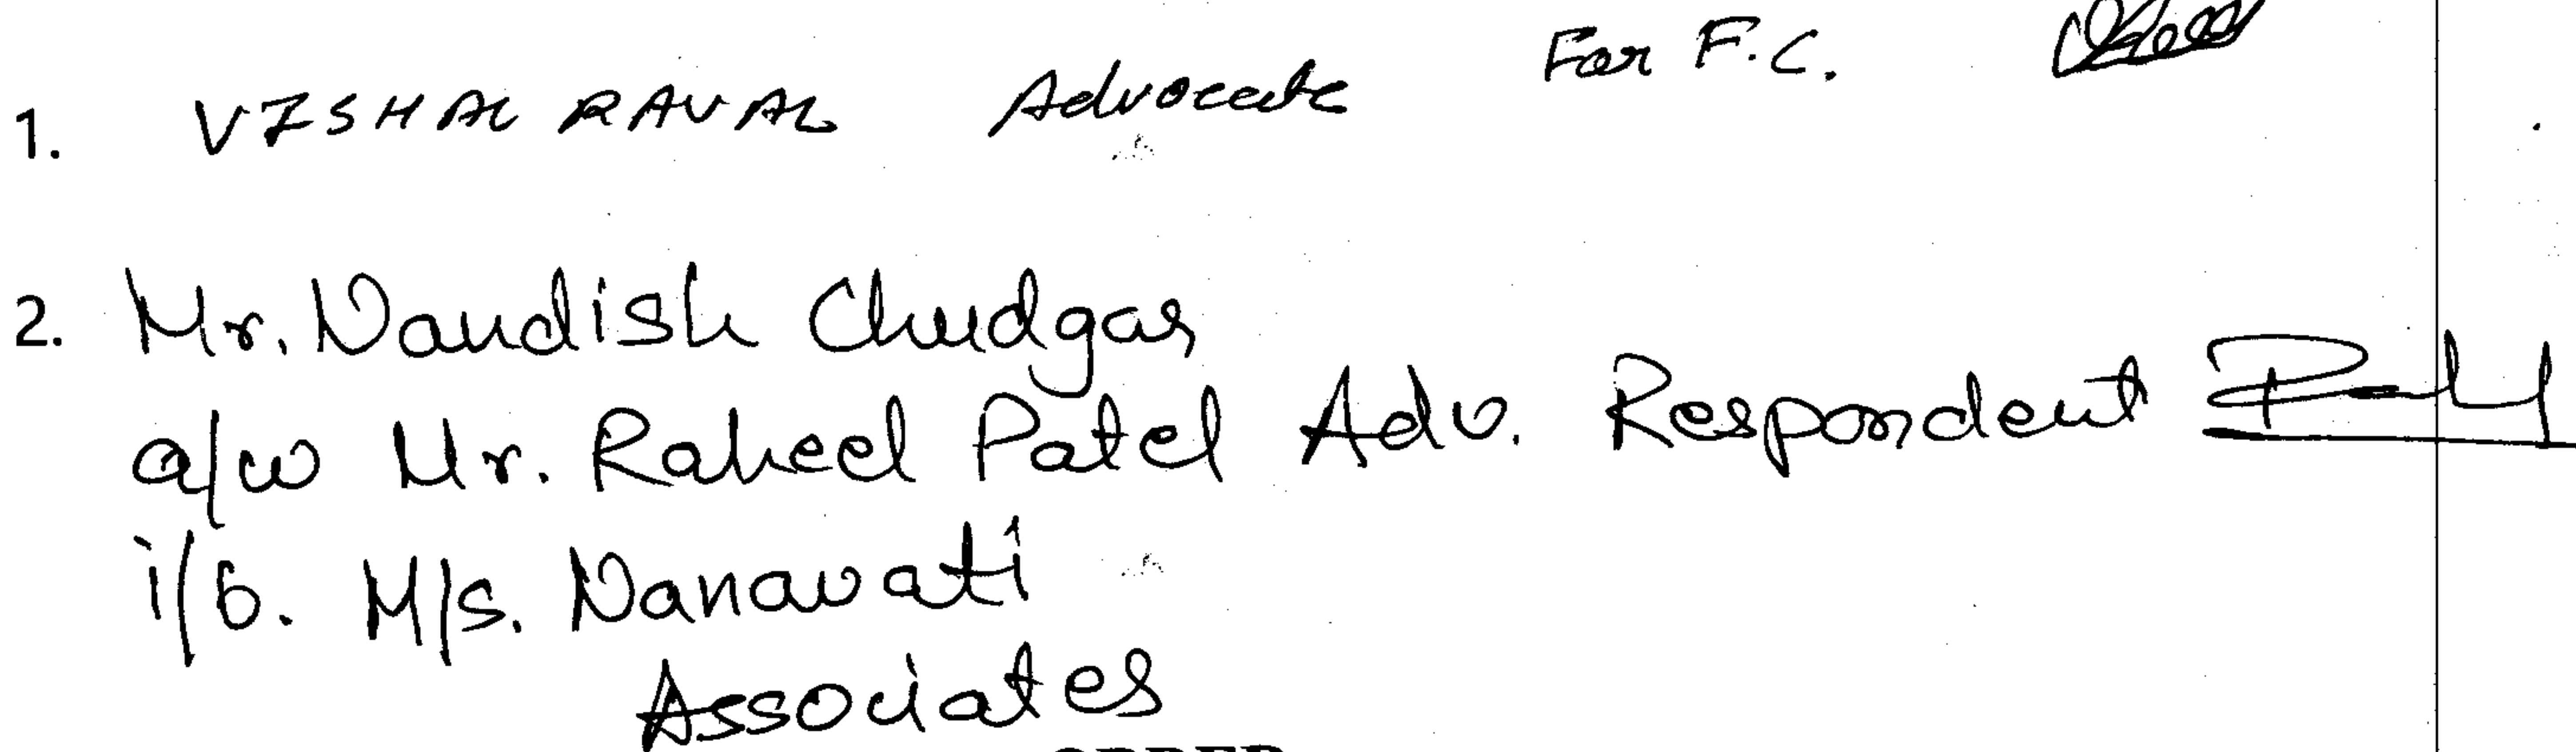 1. VISHAL RAVAL Advocate For F.C.
2. Mr. Nandish Chudgar
a/w Mr. Raheel Patel Adv. Respondent
i/b. M/s. Nanavati
Associates